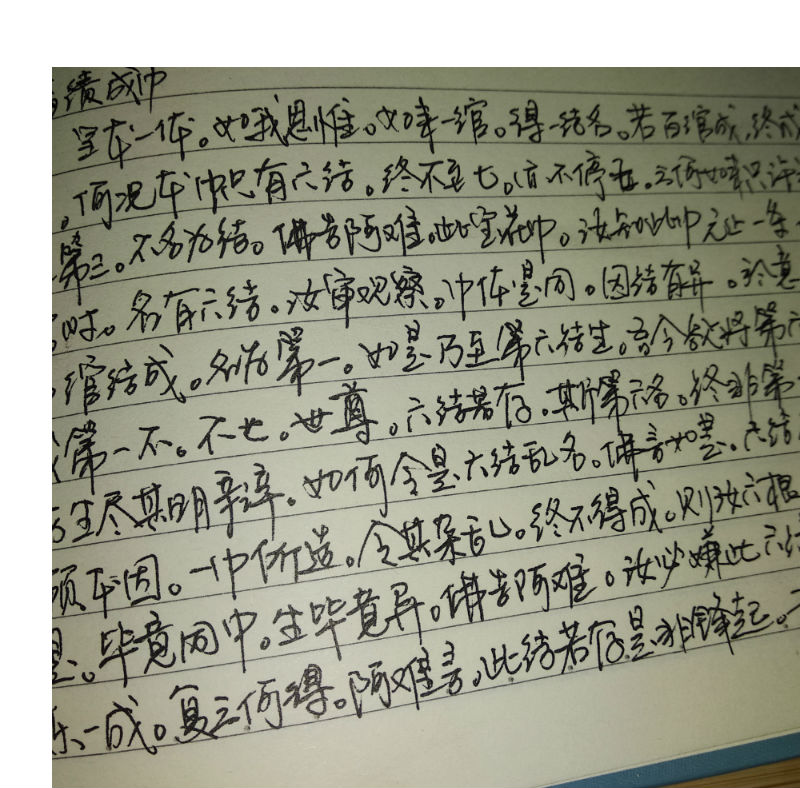 绩成巾
宝本一体。如我思惟。如来一绾。得一结名。若百绾成,终成
。何况本巾只有六结。终不至七。亦不停五。云何如来只许
第三。不名为结。佛告阿难。此宝花巾。汝知此巾元止一条
时。名有六结。汝审观察。巾体是同。因结有异。于意
绾结成。名为第一。如是乃至第六结生。吾今欲将第六
第一不。不也。世尊。六结若存。斯第六名。终非第
生尽其明辛辛。如何令是六结乱名。佛言如是。六结
顾本因。一巾所造。令其杂乱。终不得成。则汝六根
是。毕竟同中。生毕竟异。佛告阿难。汝必嫌此六结
乐一成。复云何得。阿难言。此结若存是非锋起。